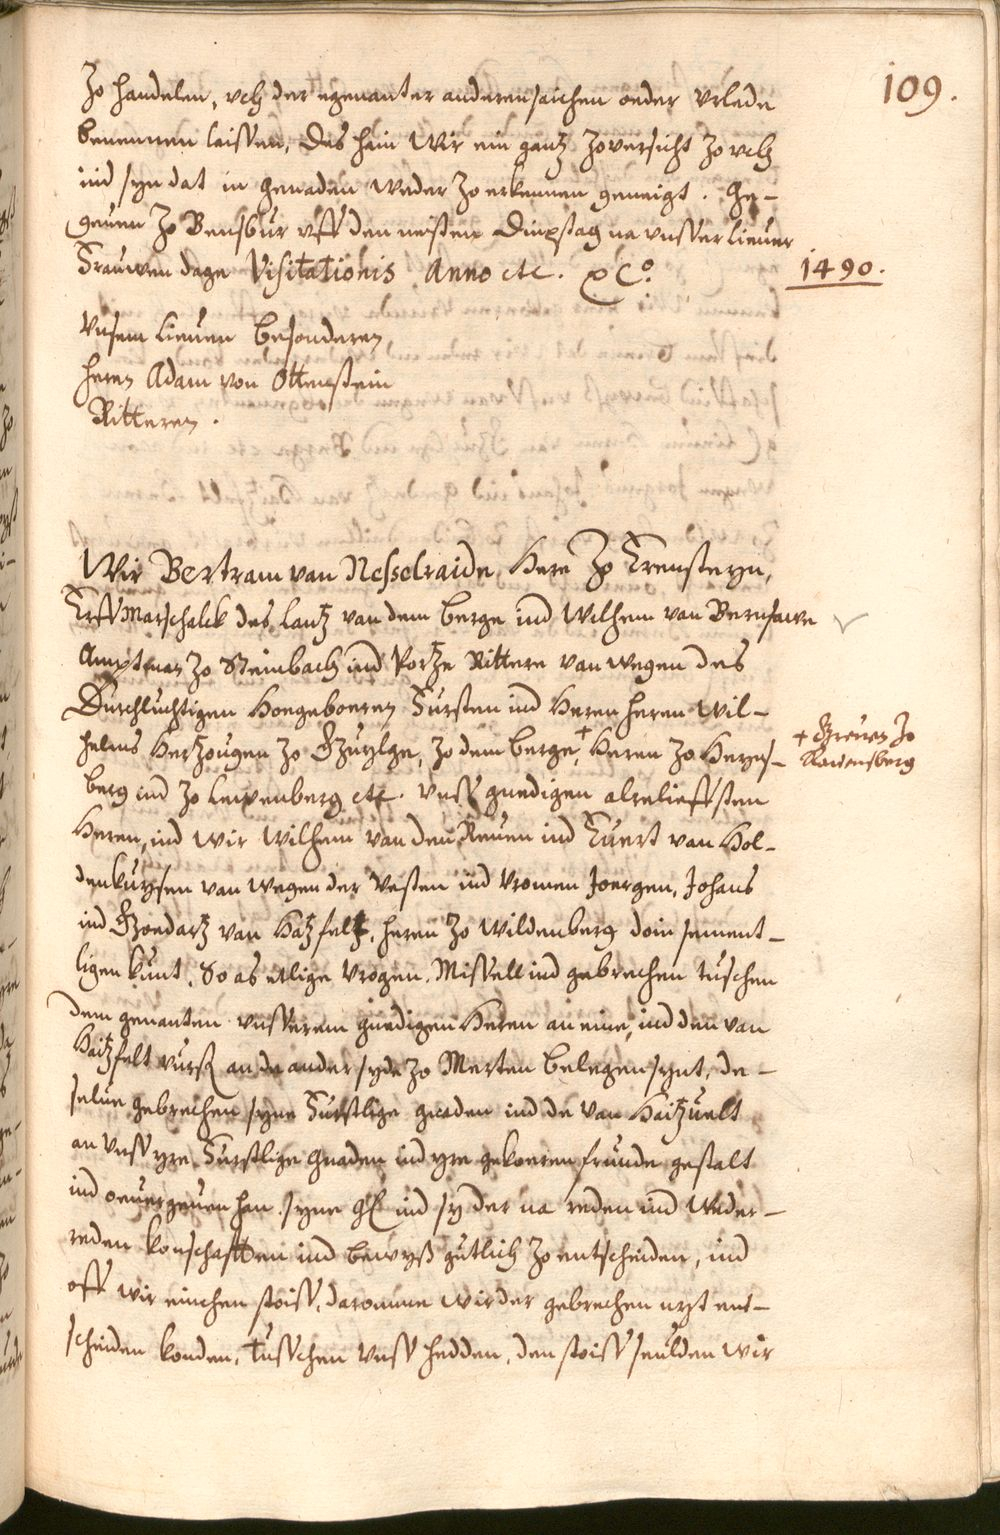 109.
Zo handelen, vch der egenanter anderen saichen oeder vrlede
benemmen laissen, Des hain Wir ein gantz zoversicht zo vch
ind syn dat in genaden weder zo erkennen geneigt. Ge-
geuen zo Bensbur vff den neisten Dinxstag na vnsser lieuer
Frauwen dage Visitationis Anno etc. xC°.
1490.
Vnsem lieuen besonderen
heren Adam von Ottenstein
Ritteren.
Wir Bertram van Nesselraide Here zo Erensteyn,
Erff Marschalck des Lantz van dem Berge ind Wilhem van Bernsawe
Amptman zo Steinbach ind Portze Rittere van wegen des
Durchluchtigen Hoegeboeren Fursten ind Heren heren Wil-
helms Hertzougen zo Gzuylge, zo dem Berge, + Heren zo Heyns-
+ Greuen zo
Rauensberg
berg ind zo Lewenberg etc. vnss gnedigen alreliefsten
Heren, ind wir Wilhem van den Reuen ind Euert van Hol-
denkuysen van wegen der Vesten ind vromen Joergen, Johans
ind Goedartz van Hatzfeltz, heren zo Wildenberg doin sement-
ligen kunt, So as etlige vrogen, Missell ind gebrechen tuschen
dem genanten vnsserem gnedigen Heren an eine, ind den van
Haitzfelt vurß an de ander syde zo Merten belegen synt, de-
selue gebrechen syne Furstlige gnaden ind de van Haitzuelt
an vnss yre Furstlige gnaden ind yre gekoeren frunde gestalt
ind oeuergeuen han, syne gl ind sy der na reden ind weder-
reden konschafften ind bewyß gutlich zo entscheiden, ind
off wir einchen stoiss, daromme wir der gebrechen nyt ent-
scheiden konden, tusschen vnss hedden, den stoiss seulden wir